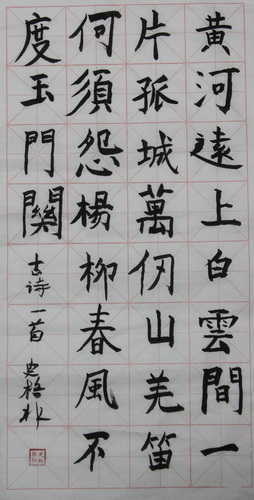 黄河遠上白雲間一
片孤城萬仞山羌笛
何須怨楊柳春風不
度玉門關
古诗一首